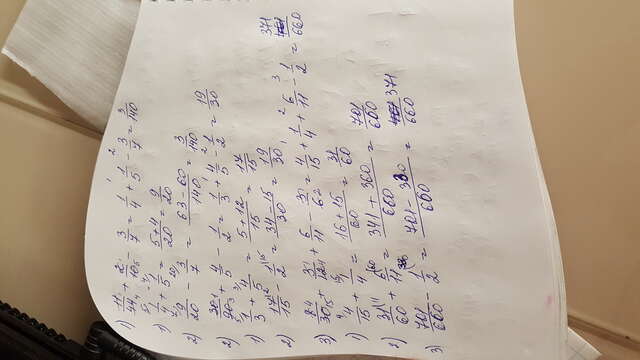 1) 11/44 + 2/10 - 3/7 = 1/4 + 1/5 - 3/7 = 3/140
1) 1/4 + 1/5 = 5+4/20 = 9/20
2) 9/20 - 3/7 = 63-60/140 = 3/140
2) + 4/5 - 1/2 = 1/3 + 4/5 - 1/2 = 19/30
1) 1/3 + 4/5 = 5+12/15 = 17/15
2) 17/15 - 1/2 = 34-15/30 = 19/30
3) 8/30 + 3/12 + 6/11 - 3/6 = 4/15 + 1/4 + 6/11 - 1/2 = 371/660
1) 4/15 + 1/4 = 16+15/60 = 31/60
2) 31/60 + 6/11 = 341+360/660 = 701/660
3) 701/660 - 1/2 = 701-330/660 = 371/660